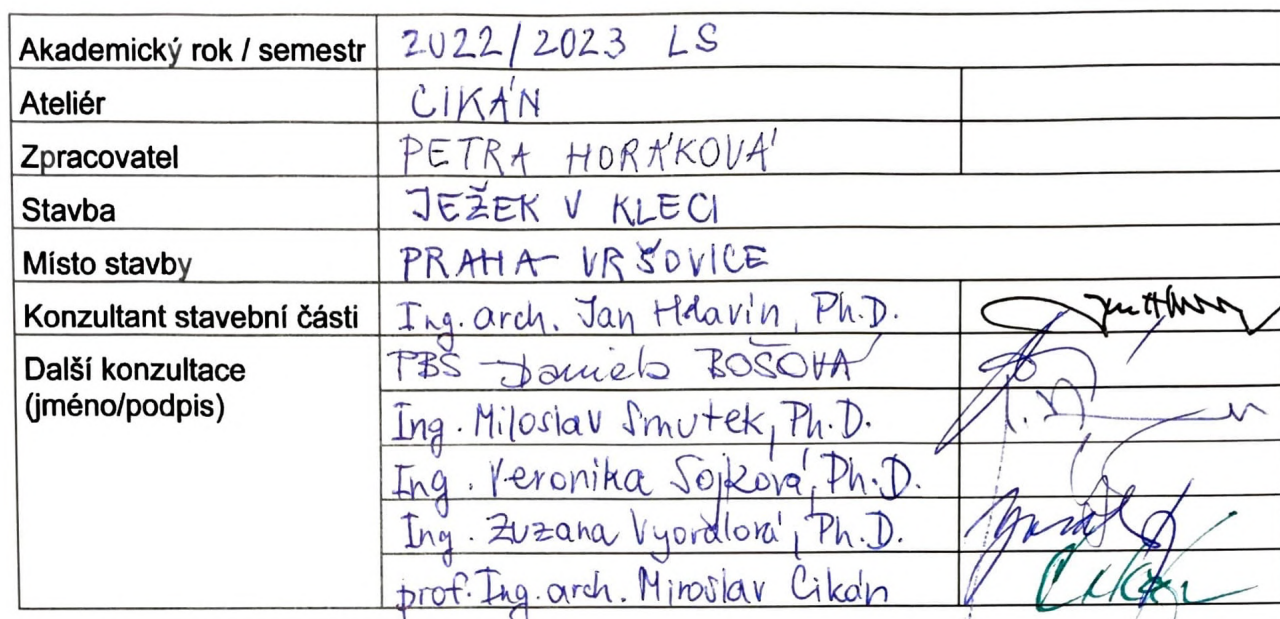 Akademický rok / semestr 2022/2023 LS
Ateliér CIKÁN
Zpracovatel PETRA HORÁKOVÁ
Stavba JEŽEK V KLECI
Místo stavby PRAHA - VRŠOVICE
Konzultant stavební části Ing. arch. Jan Hlavín, Ph.D.
Další konzultace PBS Daniela BOŠOVÁ
(jméno/podpis) Ing. Miloslav Smutek, Ph.D.
Ing. Veronika Sojková, Ph.D.
Ing. Zuzana Vyoralová, Ph.D.
prof. Ing. arch. Miroslav Cikán